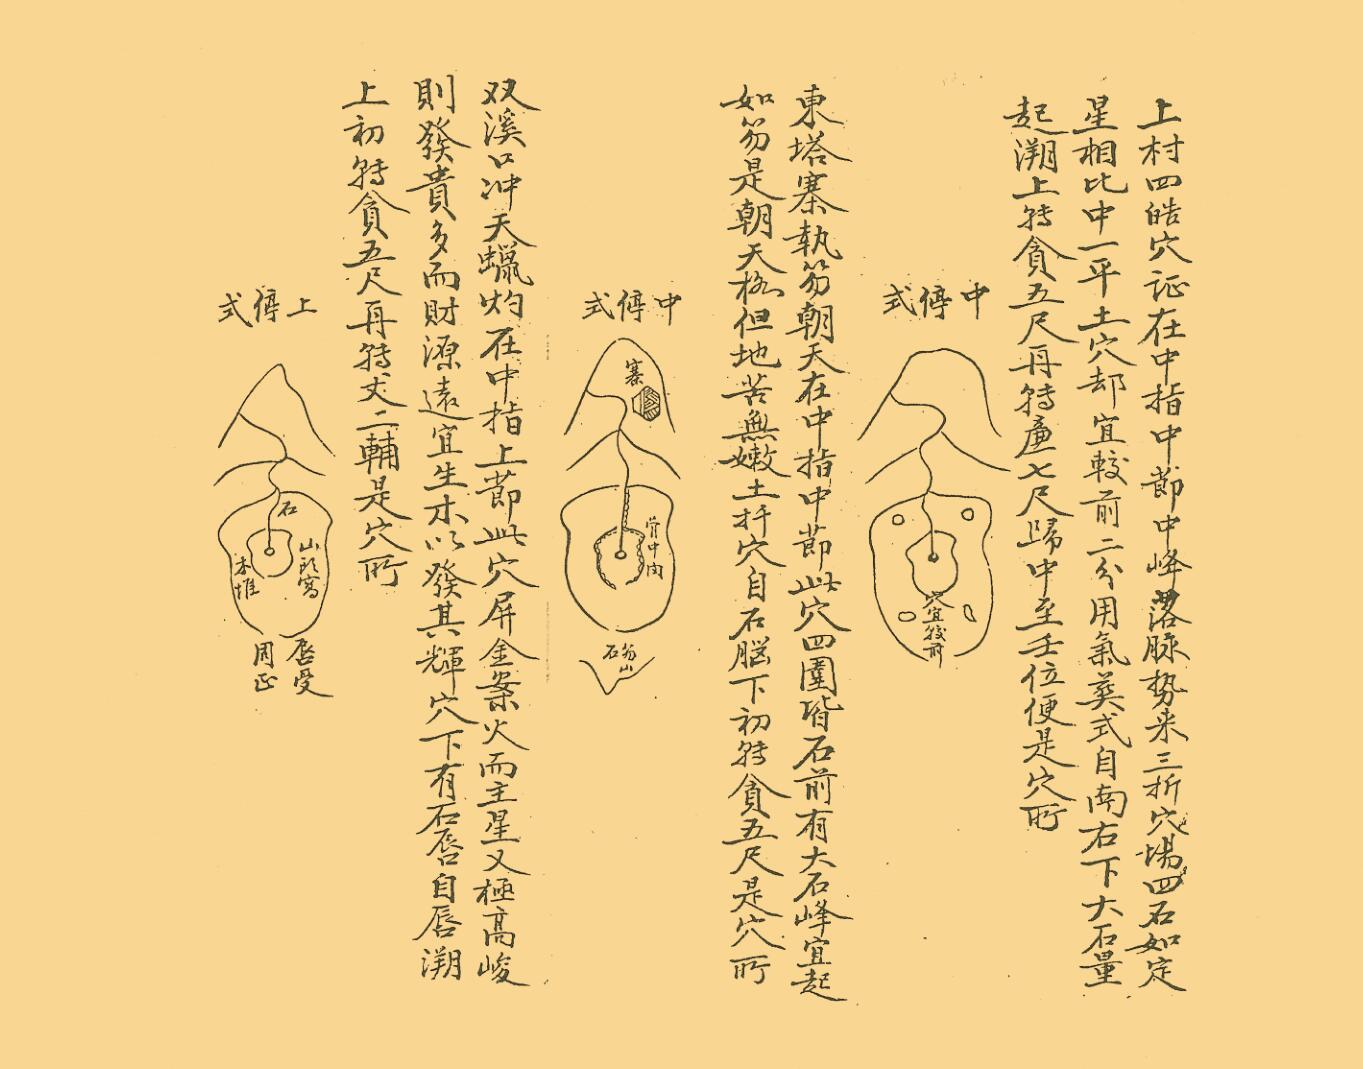 上村四皓穴证在中指中節中峰落脉势来三折穴場四石如定
星相比中一平土穴却宜較前二分用氣葵式自南右下大石量
起溯上轉貪五尺再轉廉七尺歸中至壬位便是穴所
中停式
穴宜較前
東塔寨執笏朝天在中指中節此穴四圍皆石前有大石峰宜起
如笏是朝天格但地苦無嫩土扦穴自石脳下初轉貪五尺是穴所
中停式
寨
背中肉
笏山石
双溪口冲天蠟灼在中指上節此穴屏金案火而主星又極高峻
則發貴多而財源遠宜生木以發其輝穴下有石唇自唇溯
上初轉貪五尺再轉丈二輔是穴所
上停式
石
山
木堆
唇受
周正